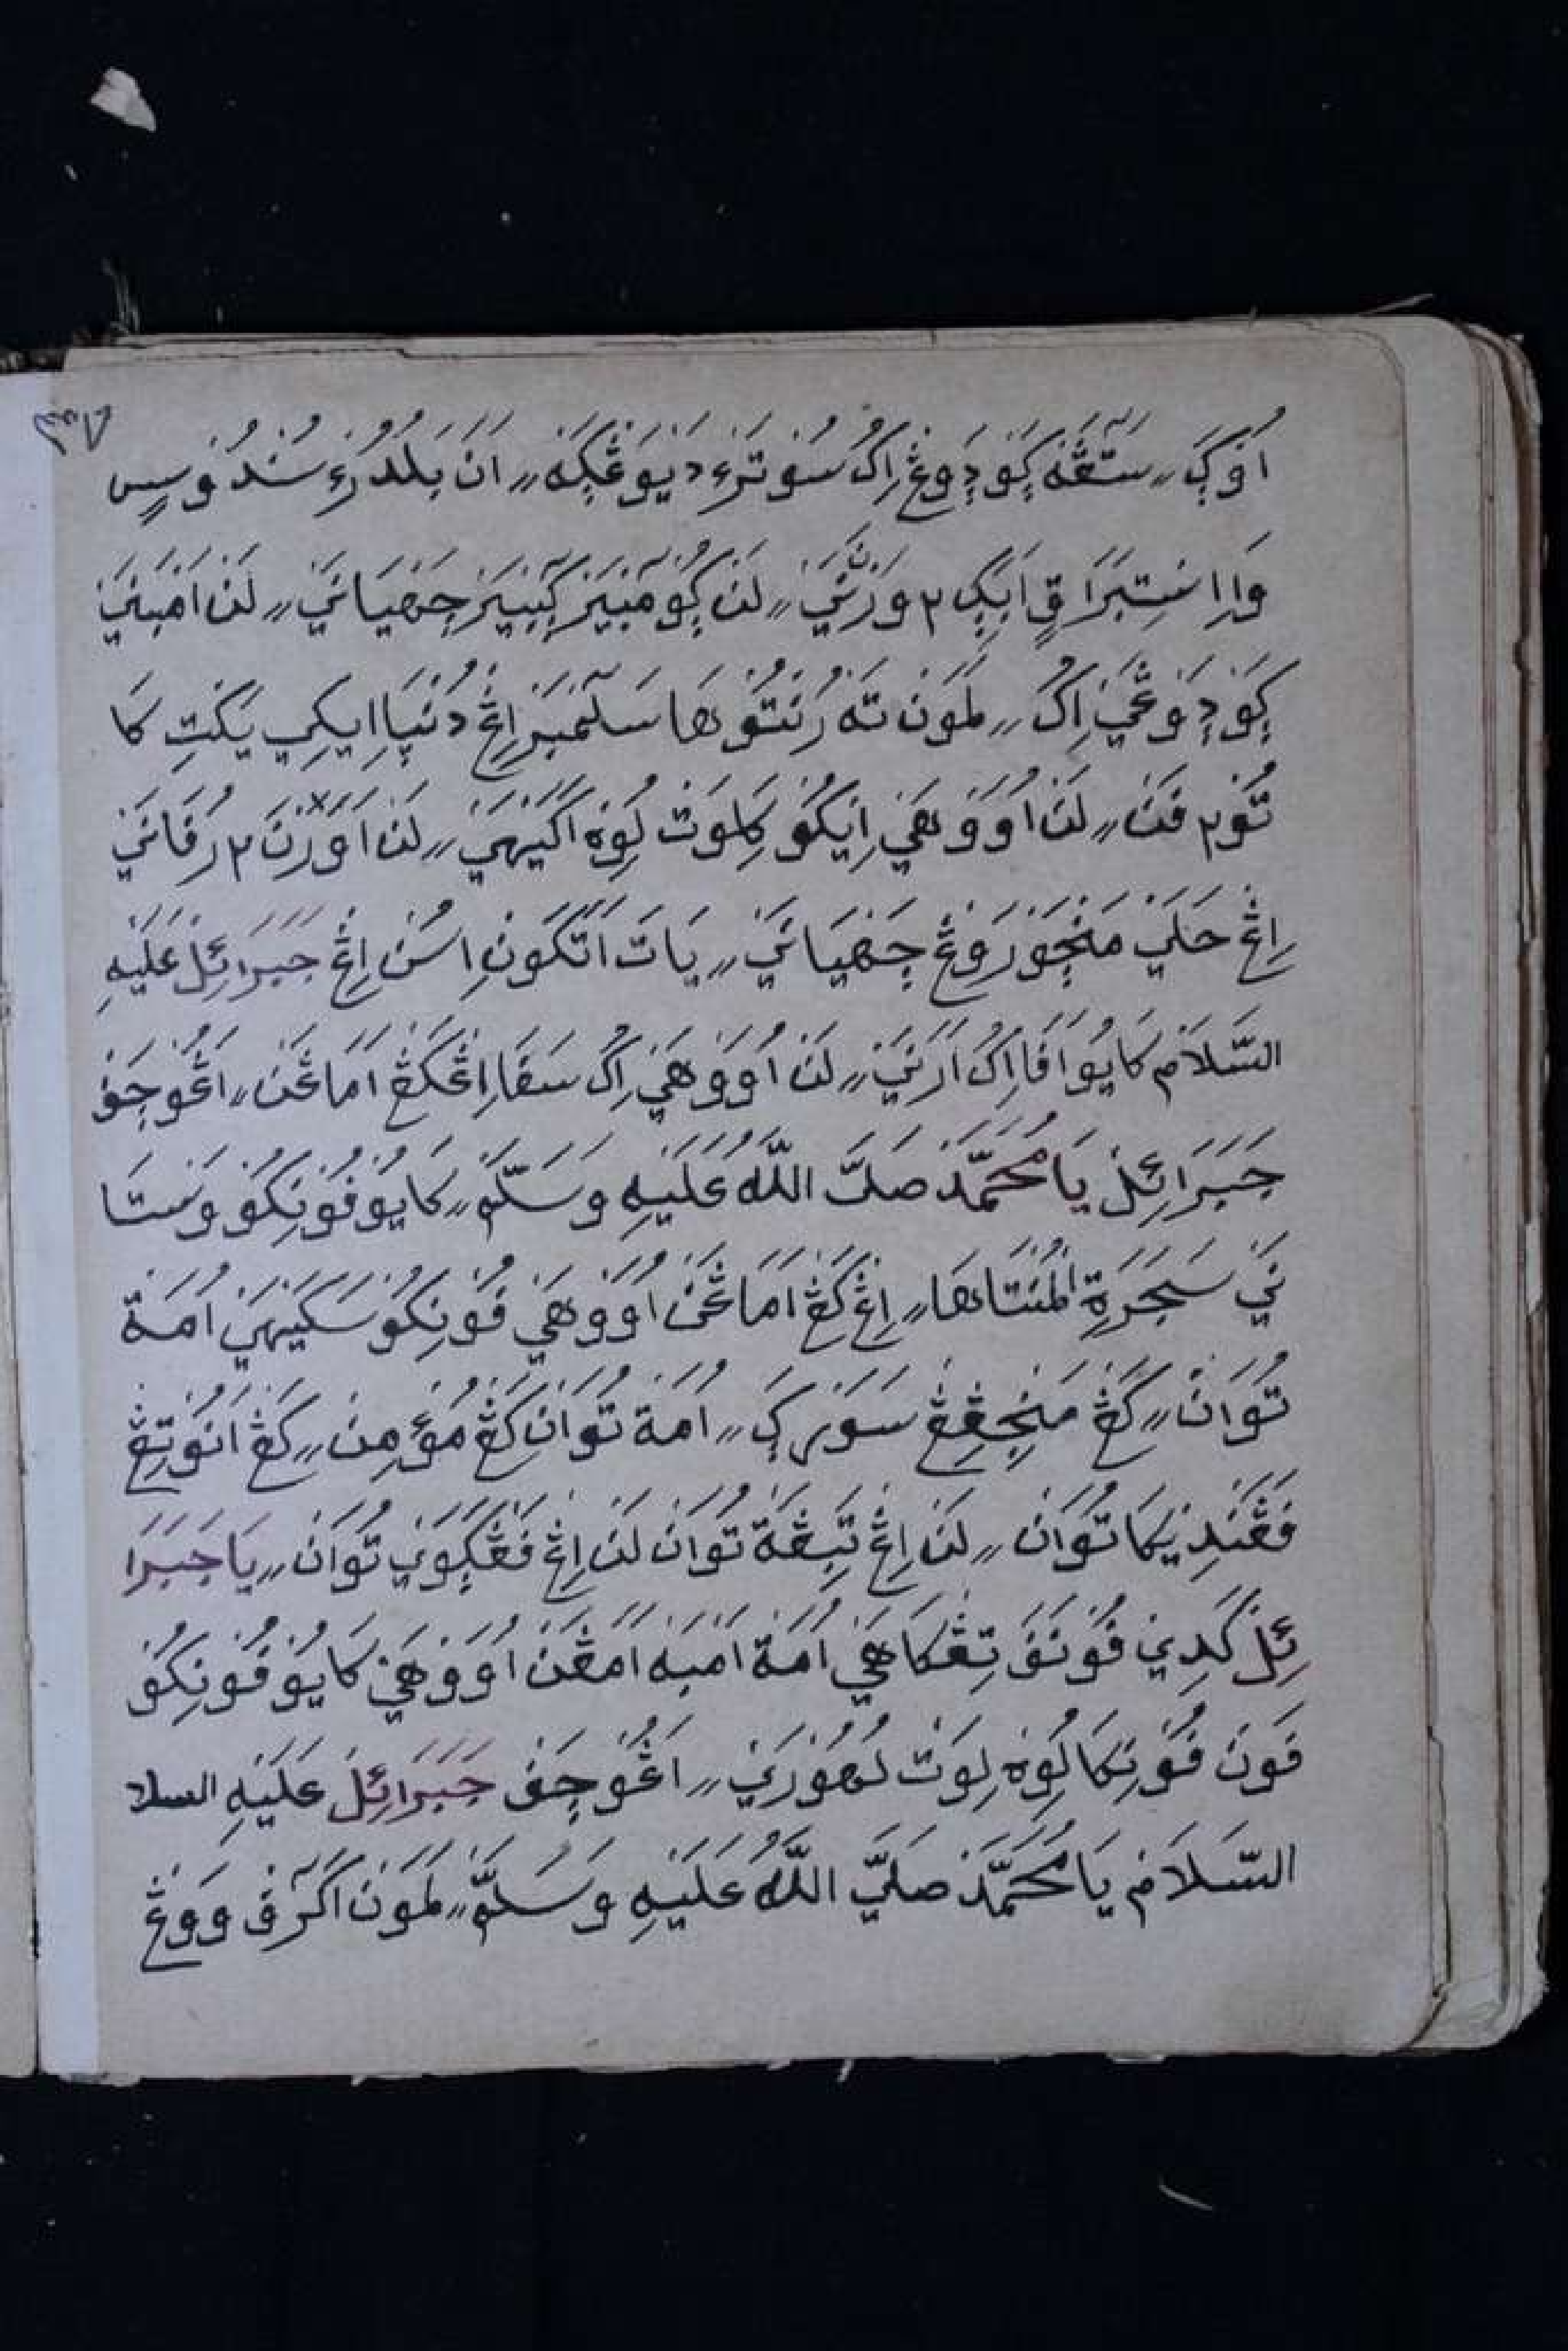 ٣٨
اَوْكَ ࢀ سَتَڠَهْ ڮَوْدَوْڠْ اِكُ سُوْتَرَءْ دَيُوَڠْڮَهْ ࢀ اَنَ بَلُدُرُءْ سُنْدُوْسٍ
وَاِاسْتِبْرَاقٍ اَبَكِ ٢ وَرْنَنَيْ ࢀ لَنْ ڮُوْمْبَيَرْ ڮَبْيَرْ چَهْيَانَيْ ࢀ لَنْ اَمْبَنَيْ
ڮَوْدَوْڠَيْ اِكُ ࢀ لَمَوْنْ تَهْ رُنْتُوْهَا سَلَمْبَرْ اِڠْ دُنْيَا اِيْكِيْ يَكْتِ كَا
تُوْ٢ فَنْ ࢀ لَنْ اُوَوْهَيْ اِيْكُوْ كِلَوَتْ لُوِهْ اَكَيْهَيْ ࢀ لَنْ اَوَرْنَ ٢ رُفَانَيْ
اِڠْ حَلَيْ مَنْچَوْرَوْڠْ چَهْيَانَيْ ࢀ يَاتَ اَتَكَوْنْ اِسُنْ اِڠْ جَبَرَائِلْ عَلَيْهِ
السَّلَامْ كَايُوْ اَفَا اِكُ اَرَنَيْ ࢀ لَنْ اُوَوْهَيْ اِكُ سَفَا اِڠْكَڠْ اَمَاڠَنْ ࢀ اَڠُوْچَفْ
جَبَرَائِلْ يَا مُحَمَّدْ صَلَّى اللّٰهُ عَلَيْهِ وَسَلَّمْ ࢀ كَايُوْ فُوْنِكُوْ وَسْتَا
نَيْ سَجَرَةِ الْمُنْتَاهَا ࢀ اِڠْ كَڠْ اَمَاڠَنْ اُوَوْهَيْ فُوْنِكُوْ سَكَيْهَيْ اُمَةْ
تُوَانْ ࢀ كَڠْ مَنْجِڠِڠْ سَوَرْكَ ࢀ اُمَةْ تُوَانْ كَڠْ مُؤْمِنْ ࢀ كَڠْ اَنُوْتِڠْ
فَڠَنْدِيْكَا تُوَانْ ࢀ لَنْ اِڠْ تِيْڠَةْ تُوَانْ لَنْ اِڠْ فَڠْڮَوَيْ تُوَانْ ࢀ يَا جَبَرَا
ئِلْ كَدِيْ فُوْنَفَ تِڠْكَاهَيْ اُمَةْ اَمْبَهْ اَمَڠَنْ اُوَوْهَيْ كَايُوْ فُوْنِكُوْ
فَوْنْ فُوْنِكَا لُوِهْ لِوَتْ لُهُوْرَيْ ࢀ اَڠُوْچَفْ جَبَرَائِلْ عَلَيْهِ السلا
السَّلَامْ يَا مُحَمَّدْ صَلَّى اللّٰهُ عَلَيْهِ وَسَلَّمْ ࢀ لَمَوْنْ اَكَرَفْ وَوَڠْ